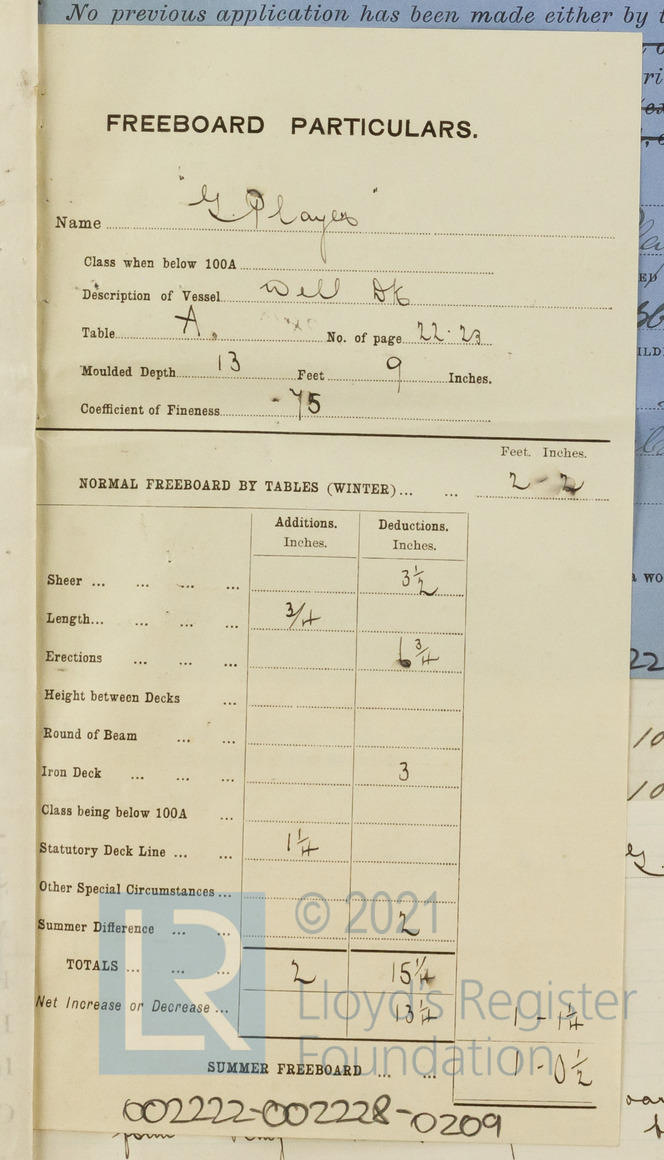 No previous application has been made either by t
FREEBOARD PARTICULARS.
Name "G. Player"
Class when below 100A
Description of Vessel Well Dk
Table A. No. of page 22.23
Moulded Depth 13 Feet 9 Inches.
Coefficient of Fineness .75
Feet. Inches.
NORMAL FREEBOARD BY TABLES (WINTER)... ... 2 - 2
Additions. Deductions.
Inches. Inches.
Sheer ... ... ... ... 3½
Length... ... ... ... ¾
Erections ... ... ... 6¾
Height between Decks ...
Round of Beam ... ...
Iron Deck ... ... ... 3
Class being below 100A ...
Statutory Deck Line ... ... 1¼
Other Special Circumstances ...
Summer Difference ... ... 2
TOTALS ... ... ... 2 15¼
Net Increase or Decrease ... 13¼ 1 - 1¼
SUMMER FREEBOARD ... ... 1 - 0½
002222-002228-0209
LR
© 2021
Lloyd's Register
Foundation